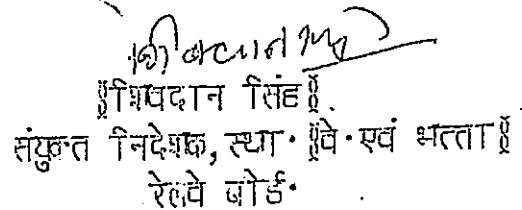 शिवदान सिंह
॥शिवदान सिंह॥.
संयुक्त निदेशक, स्था. ॥वे.एवं भत्ता॥
रेलवे बोर्ड.